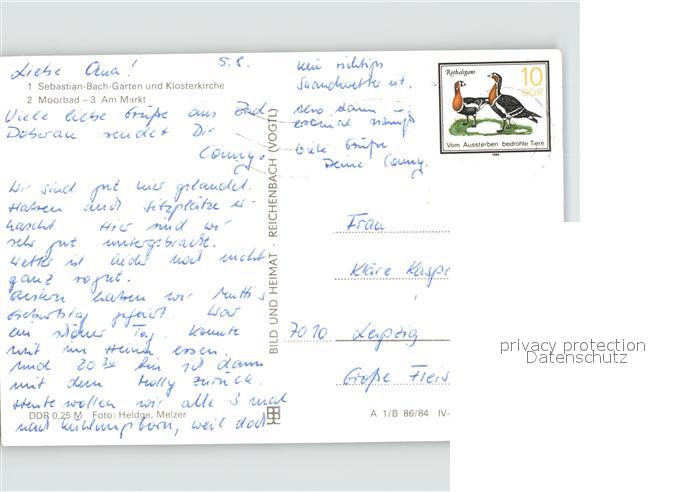 Liebe Oma! 5.8.
1 Sebastian-Bach-Garten und Klosterkirche
2 Moorbad – 3 Am Markt
Viele liebe Grüße aus Bad
Doberan sendet Dir
Conny.
Wir sind gut hier gelandet.
Haben auch Sitzplätze er-
hascht. Hier sind wir
sehr gut untergebracht.
Wetter ist leider noch nicht
ganz so gut.
Gestern haben wir Mutti's
Geburtstag gefeiert. War
ein schöner Tag. Konnte
mit im Heim essen.
Und 20 bin ich dann
mit dem Molly zurück.
Heute wollen wir alle 3 mal
nach Kühlungsborn, weil doch
DDR 0,25 M Foto: Heldge, Melzer
kein richtiges
Strandwetter ist.
Also dann
Viele Grüße
Deine Conny.
BILD UND HEIMAT · REICHENBACH (VOGTL)
Rothalsgans
10
DDR
Vom Aussterben bedrohte Tiere
1985
Frau
Kläre Kaspe
7010 Leipzig
Große Fleis
A 1/B 86/84 IV-
privacy protection
Datenschutz